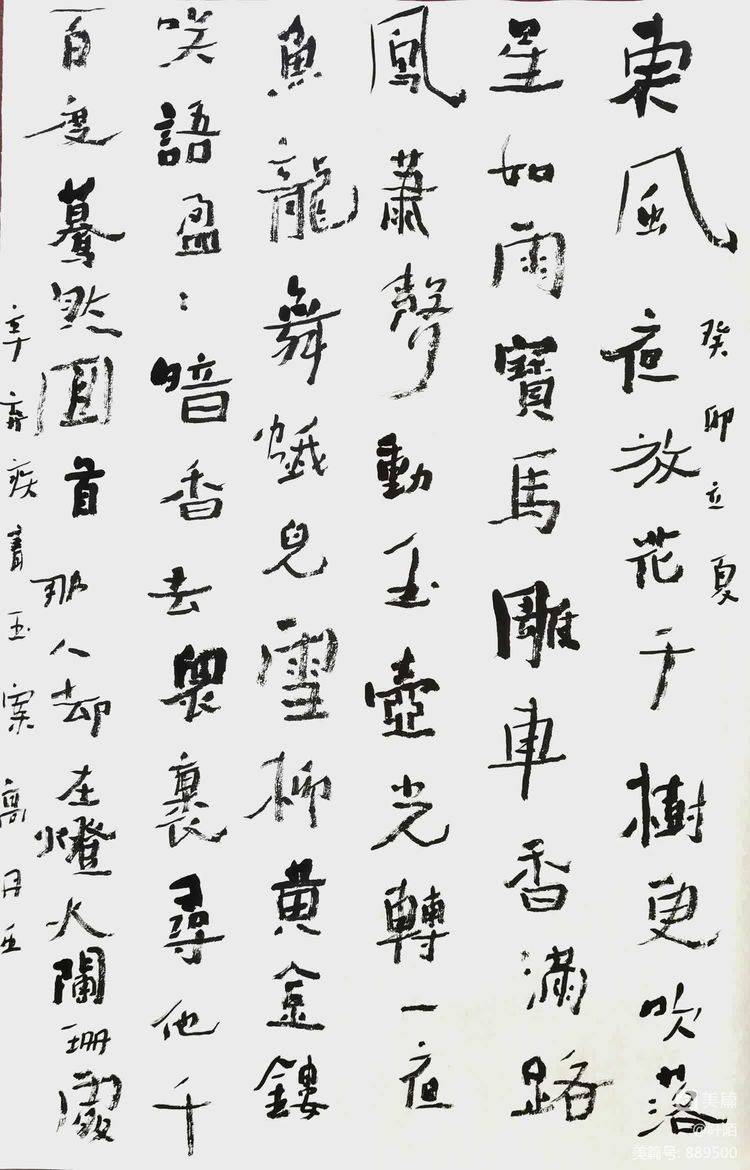 癸卯立夏
東風夜放花千樹更吹落
星如雨寶馬雕車香滿路
鳳蕭聲動玉壺光轉一夜
魚龍舞蛾兒雪柳黃金鏤
笑語盈:暗香去眾裏尋他千
百度驀然回首那人却在燈火闌珊處
辛棄疾青玉案
美篇
美篇号: 889500